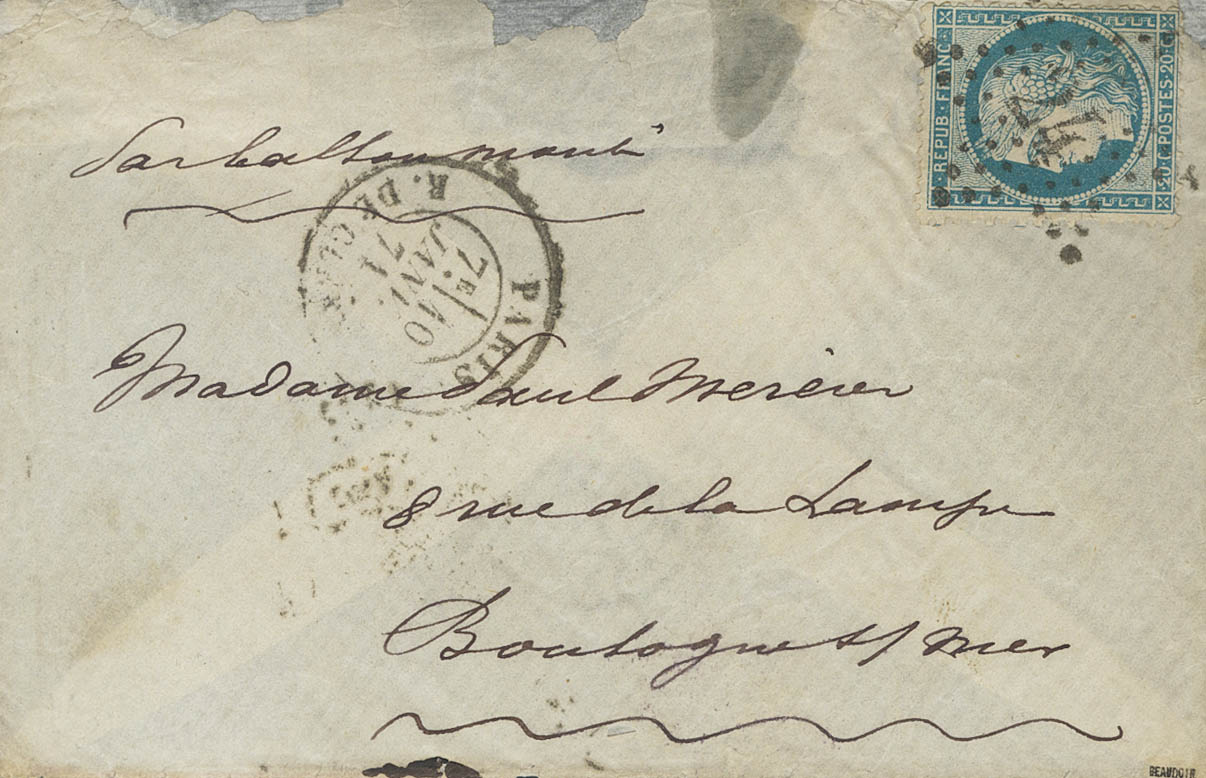 Par ballon monté
REPUB. FRANC.
20 C. POSTES. 20 C.
PARIS
R. DE CL
7E
10
JANV.
71
Madame Paul Mercier
8 rue de la Lampe
Boulogne s/ mer
BEAUDOIN